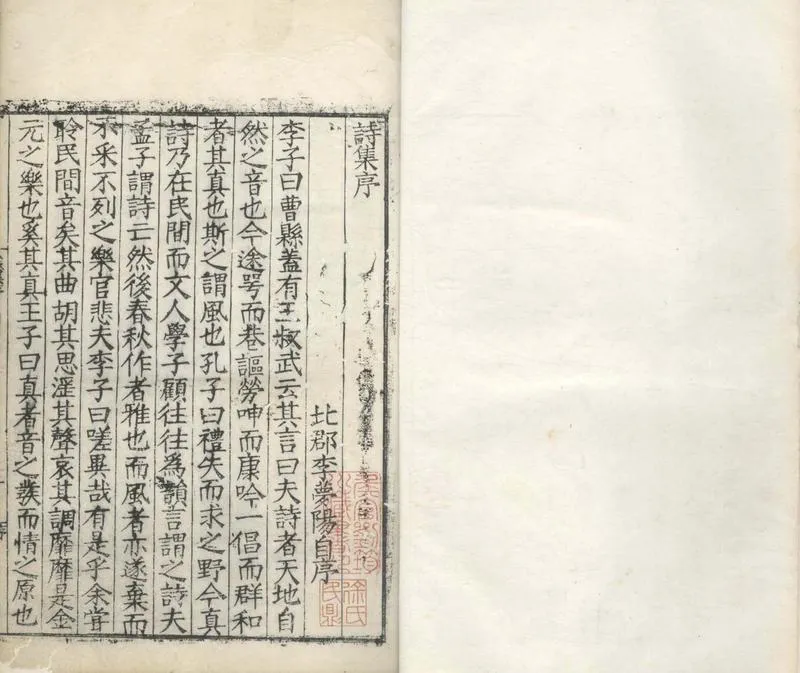 詩集序
北郡李夢陽自序
李子曰曹縣蓋有王叔武云其言曰夫詩者天地自
然之音也今途咢而巷謳勞呻而康吟一倡而群和
者其真也斯之謂風也孔子曰禮失而求之野今真
詩乃在民間而文人學子顧往往為韻言謂之詩夫
孟子謂詩亡然後春秋作者雅也而風者亦遂棄而
不采不列之樂官悲夫李子曰嗟異哉有是乎余嘗
聆民間音矣其曲胡其思淫其聲哀其調靡靡是金
元之樂也奚其真王子曰真者音之發而情之原也
徐氏
民鼎